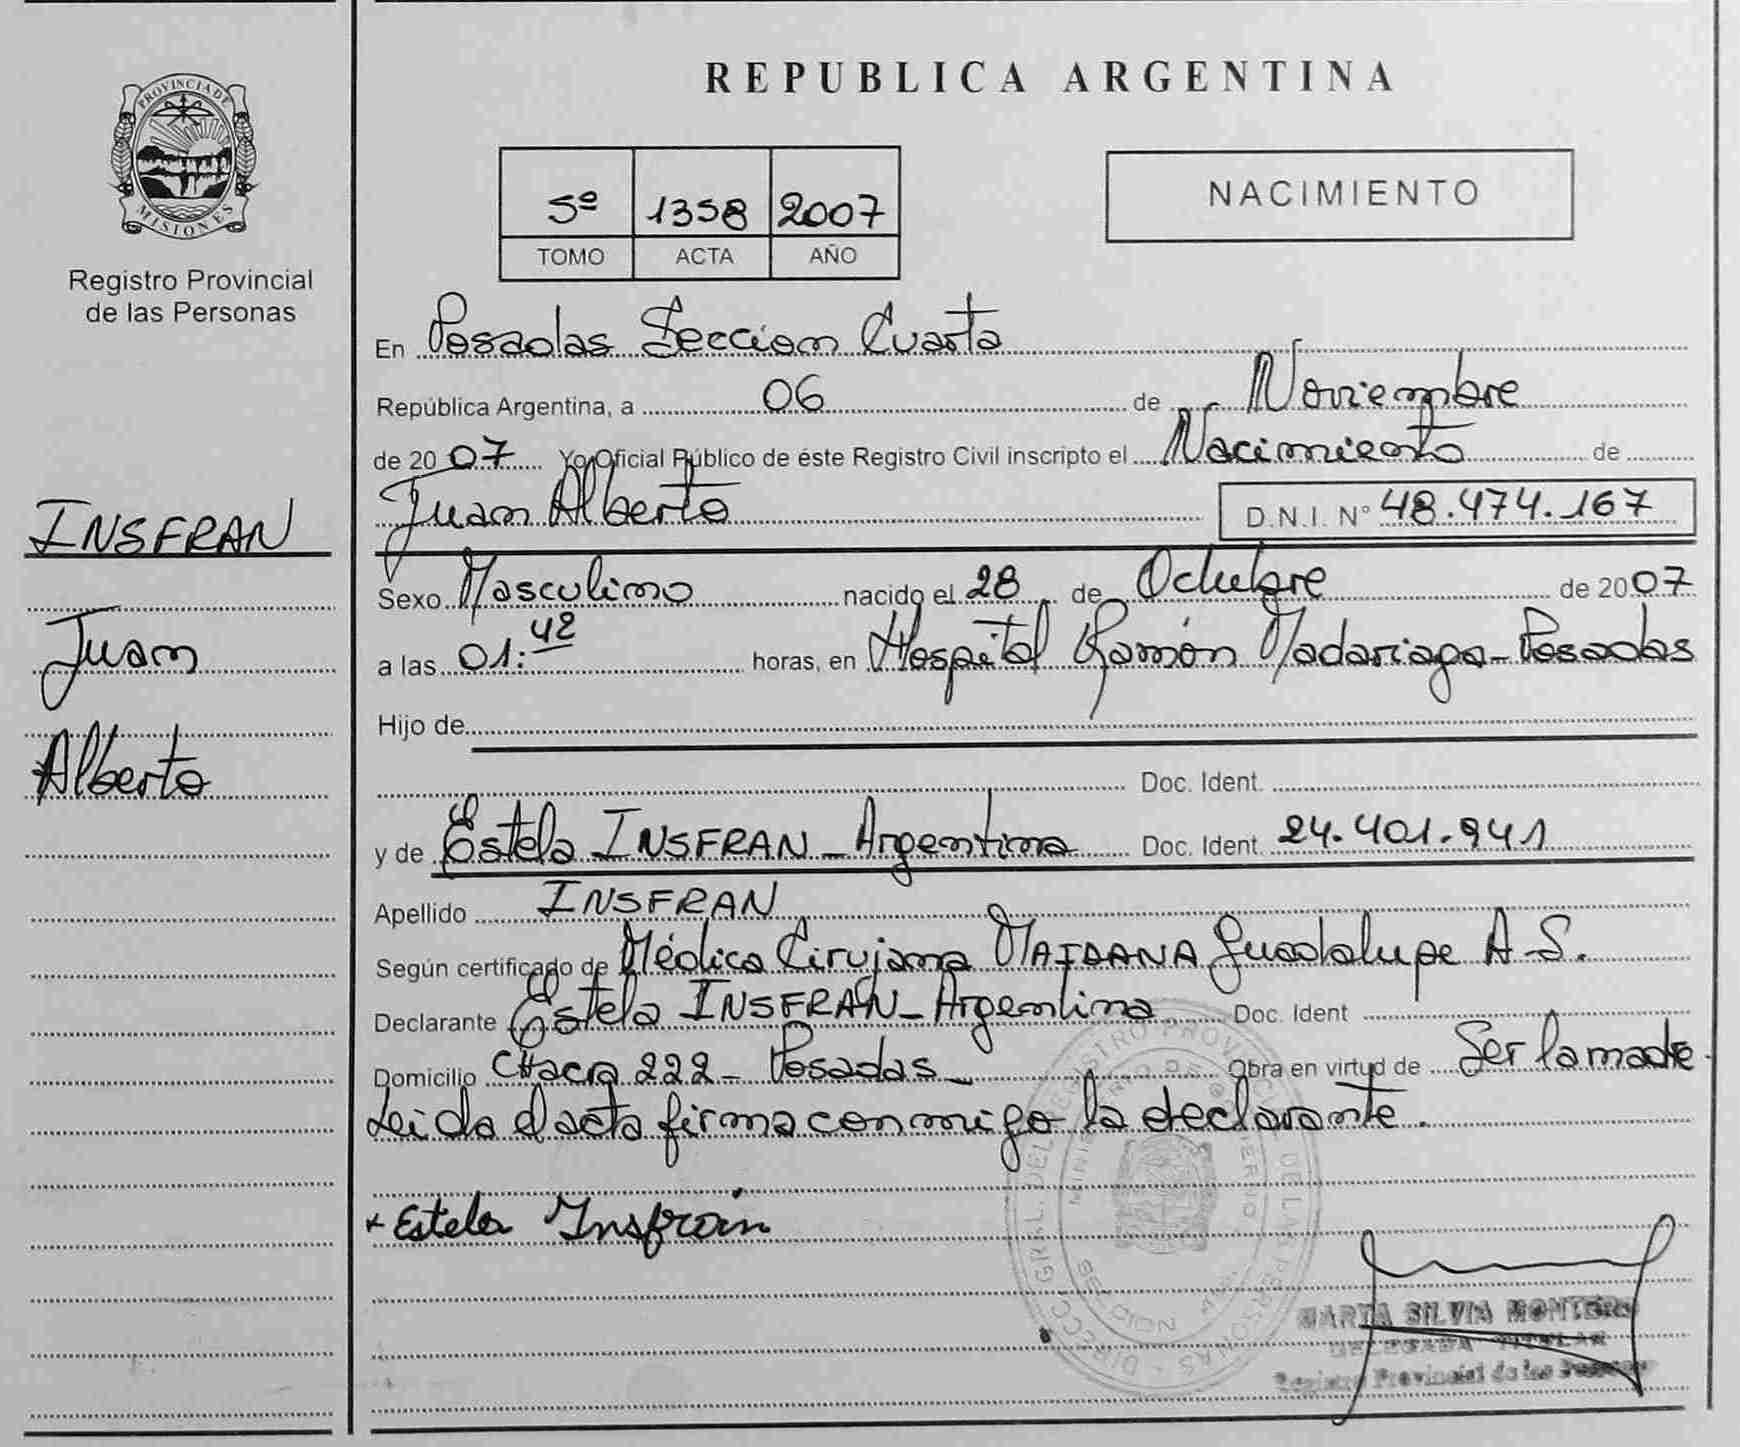 PROVINCIA DE
MISIONES
Registro Provincial
de las Personas
INSFRAN
Juan
Alberto
REPUBLICA ARGENTINA
5º 1358 2007
TOMO ACTA AÑO
NACIMIENTO
En Posadas Seccion Cuarta
República Argentina, a 06 de Noviembre
de 2007 Yo Oficial Público de éste Registro Civil inscripto el Nacimiento de
Juan Alberto D.N.I. Nº 48.474.167
Sexo Masculino nacido el 28 de Octubre de 2007
a las 01:42 horas, en Hospital Ramón Madariaga - Posadas
Hijo de
Doc. Ident.
y de Estela INSFRAN - Argentina Doc. Ident. 24.401.941
Apellido INSFRAN
Según certificado de Médica Cirujana MAIDANA Guadalupe A. S.
Declarante Estela INSFRAN - Argentina Doc. Ident
Domicilio CHacra 222 - Posadas - Obra en virtud de Ser la madre.
Leida el acta firma conmigo la declarante.
x Estela Insfrán
MARTA SILVIA MONTERO
DELEGADA TITULAR
Registro Provincial de las Personas